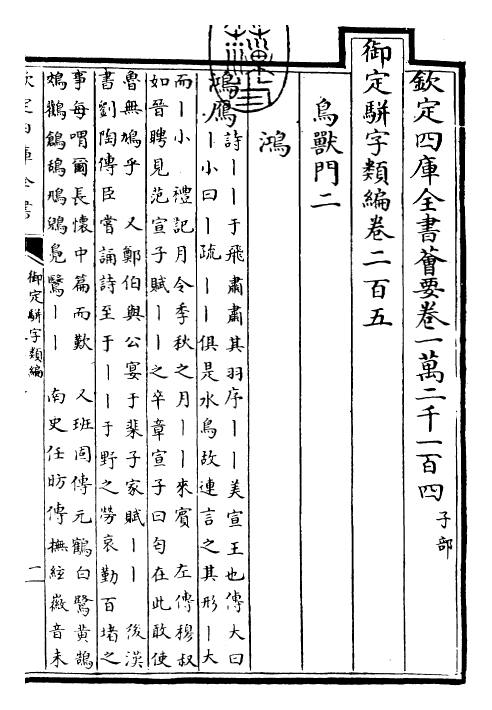 欽定四庫全書薈要卷一萬二千一百四 子部
御定駢字類編卷二百五
鳥獸門二
鴻
鴻鴈詩丨丨于飛肅肅其羽序丨丨美宣王也傳大曰
丨小曰丨疏丨丨俱是水鳥故連言之其形丨大
而丨小 禮記月令季秋之月丨丨來賓 左傳穆叔
如晉聘見范宣子賦丨丨之卒章宣子曰匄在此敢使
魯無鳩乎 又鄭伯與公宴于棐子家賦丨丨 後漢
書劉陶傳臣嘗誦詩至于丨丨于野之勞哀勤百堵之
事每喟爾長懷中篇而歎 又班固傳元鶴白鷺黃鵠
鵁鸛鶬鴰鴇鶂鳧鷖丨丨 南史任昉傳撫絃徽音未
欽定四庫全書
御定駢字類編